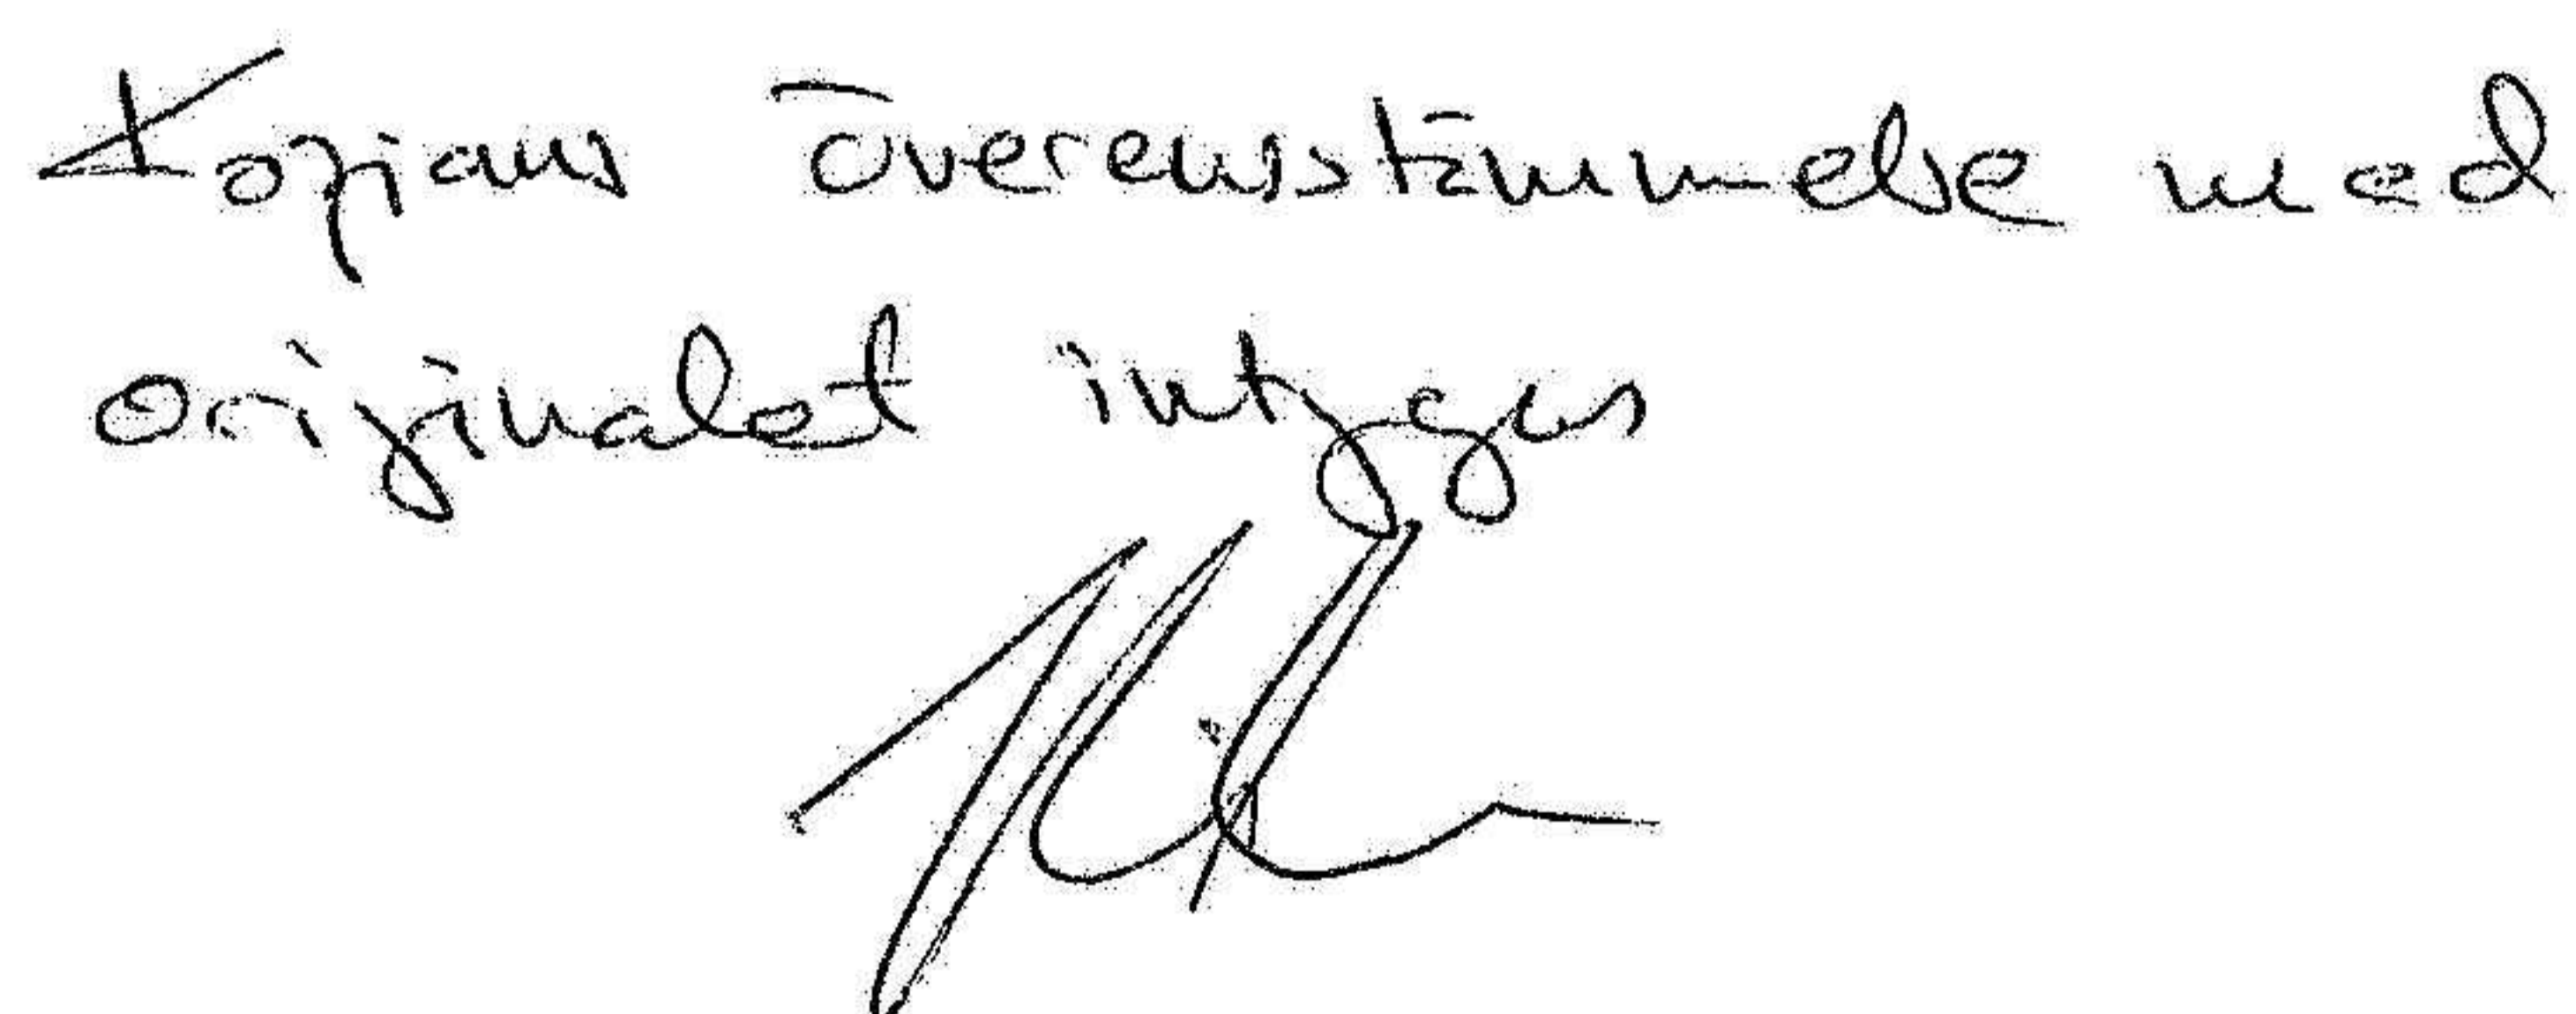 Kopians överensstämmelse med
originalet intygas